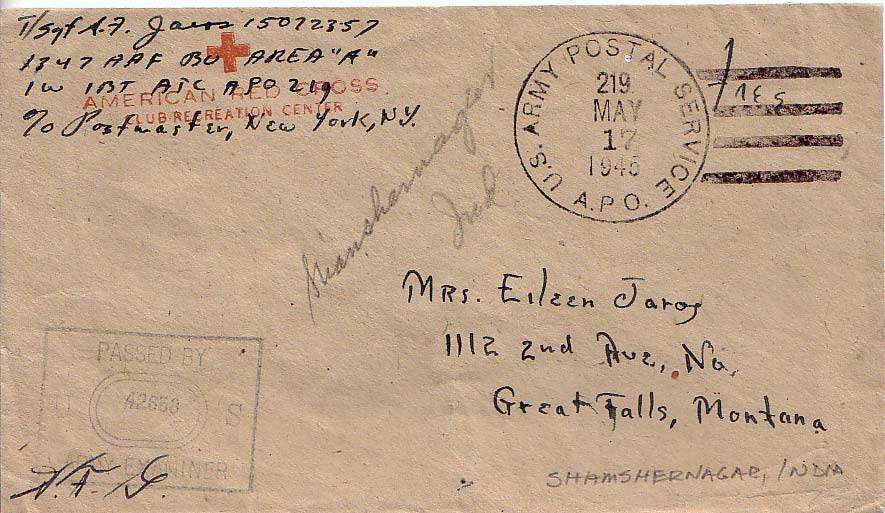 T/Sgt A.F. Jaros 15072357
1347 AAF BU AREA "A"
IW IBT ATC APO 219
AMERICAN RED CROSS
CLUB RECREATION CENTER
% Postmaster, New York, N.Y.
U.S. ARMY POSTAL SERVICE
219
MAY
17
1945
A.P.O.
Free
Shamshernagar
Ind
Mrs. Eileen Jaros
1112 2nd Ave, No.
Great Falls, Montana
PASSED BY
U 42653 S
ARMY EXAMINER
SHAMSHERNAGAR, INDIA